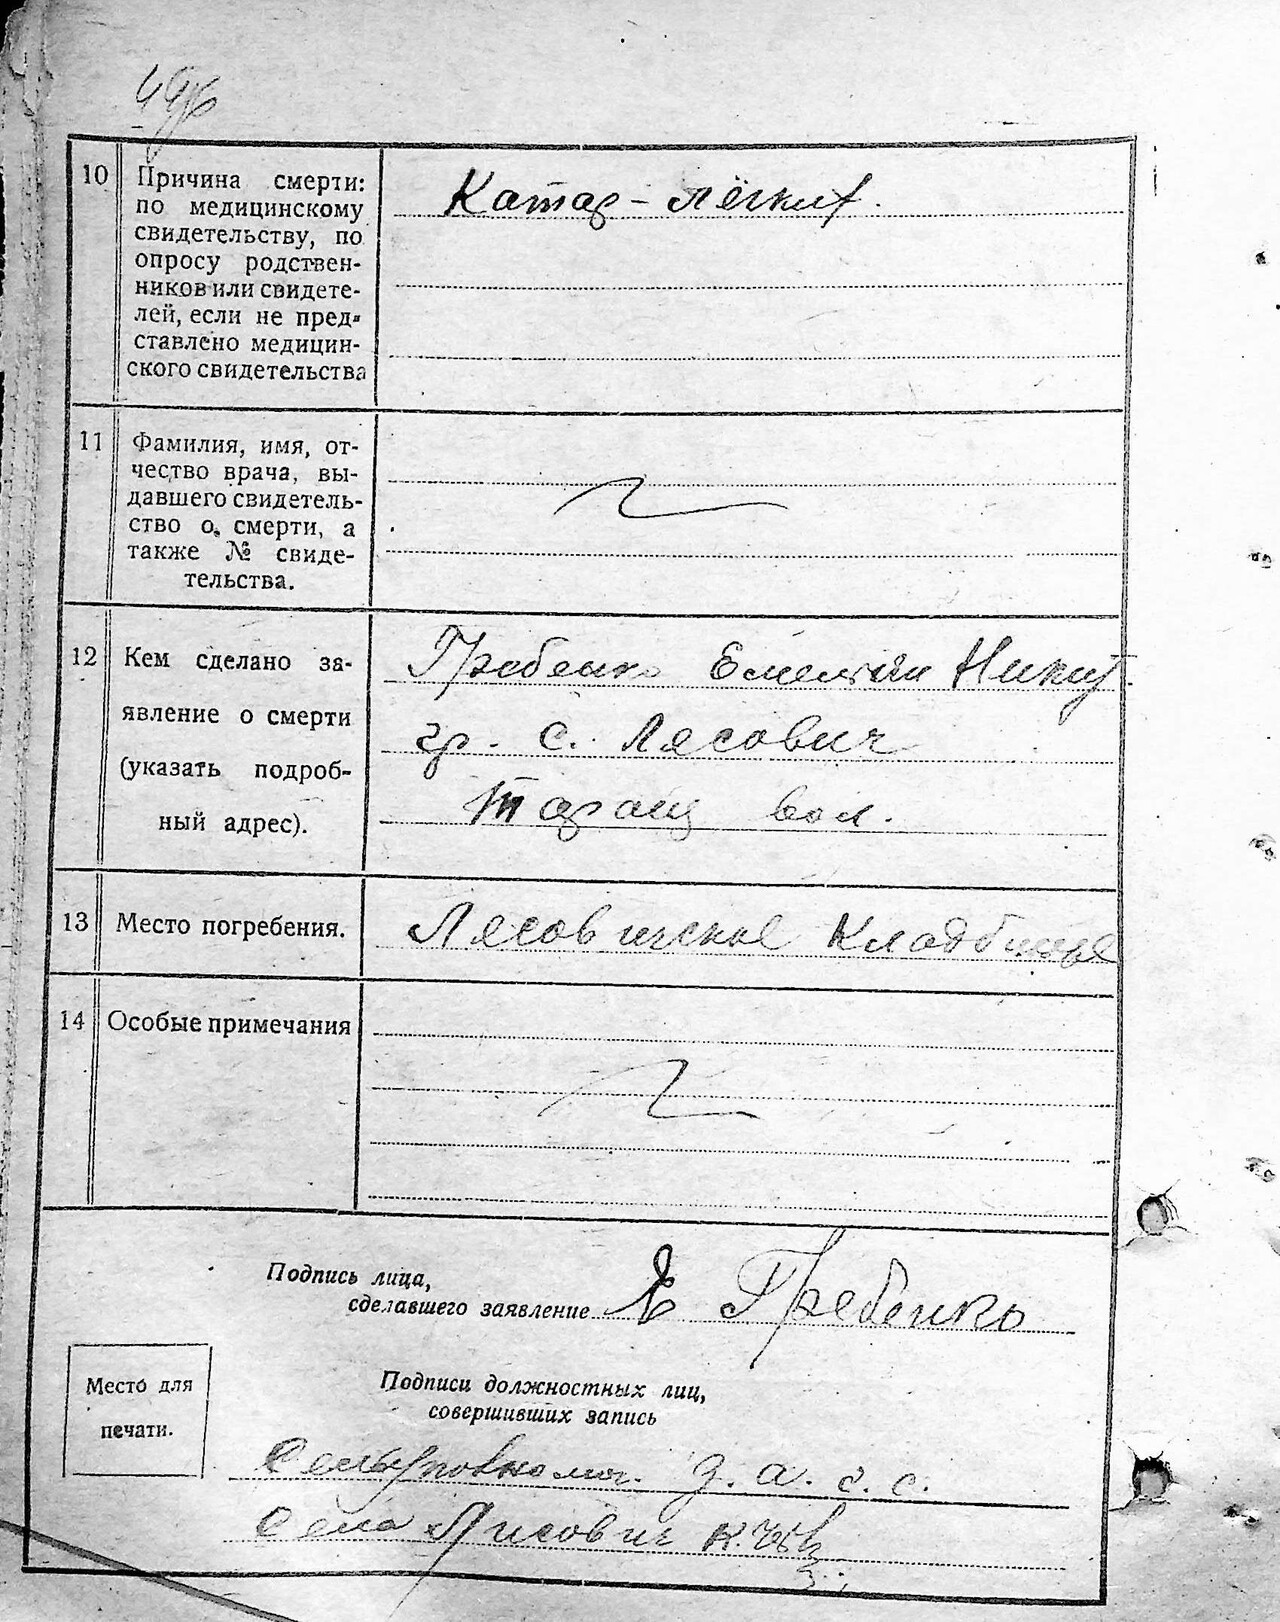 10
Причина смерти:
по медицинскому
свидетельству, по
опросу родствен-
ников или свидете-
лей, если не пред-
ставлено медицин-
ского свидетельства
Катар - лёгких.
11
Фамилия, имя, от-
чество врача, вы-
давшего свидетель-
ство о смерти, а
также № свиде-
тельства.
12
Кем сделано за-
явление о смерти
(указать подроб-
ный адрес).
Гребенко Емельян Никит.
гр. с. Лясович
Таращ вол.
13
Место погребения.
Лясовичское Кладбище
14
Особые примечания
Подпись лица,
сделавшего заявление Гребенко
Место для
печати.
Подписи должностных лиц,
совершивших запись
з. а. г. с.
Села Лисович